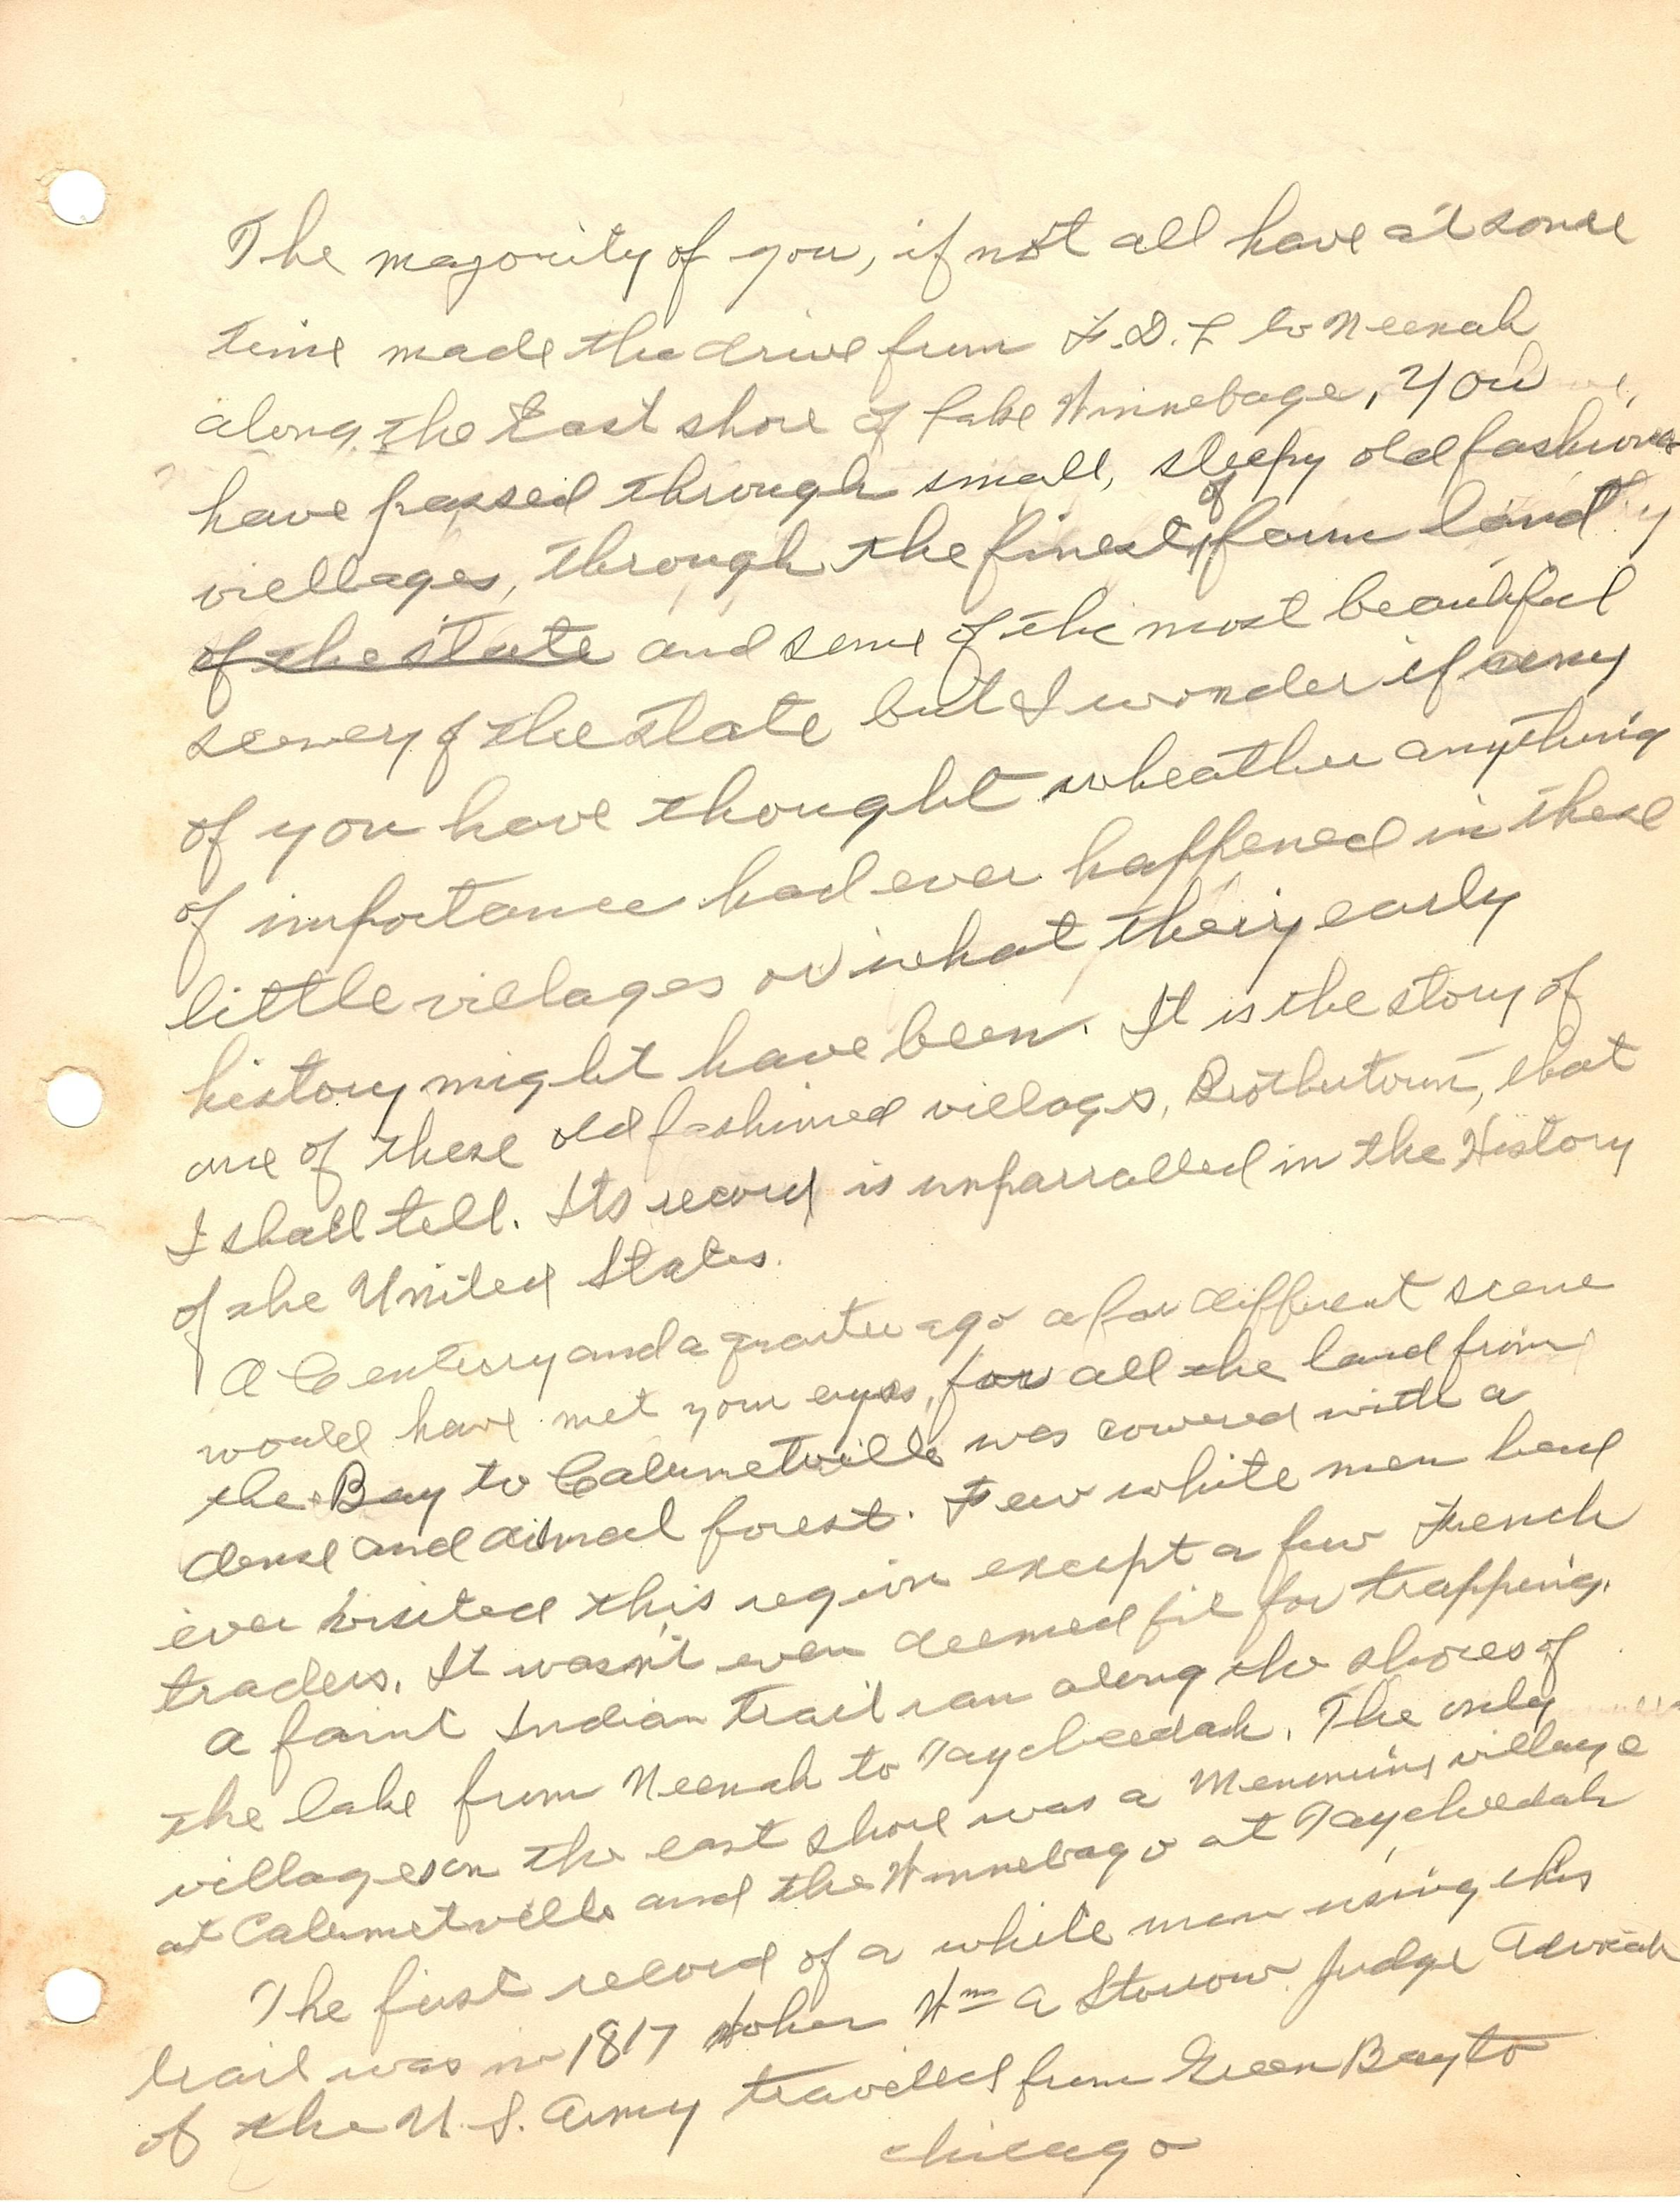 The majority of you, if not all have at some
time made the drive from F.D.L to Neenah
along the East shore of Lake Winnebago, You
have passed through small, sleepy old fashioned
villages, through the finest of farm land
of the state and some of the most beautiful
scenery of the state but I wonder if any
of you have thought wheather anything
of importance had ever happened in these
little villages or what their early
history might have been. It is the story of
one of these old fashioned villages, Brothertown, that
I shall tell. Its record is unparralled in the History
of the United States.
A Centurry and a quarter ago a far different scene
would have met your eyes, for all the land from
the Bay to Calumetville was covered with a
dense and dismal forest. Few white men had
ever visited this region except a few French
traders. It wasn't even deemed fit for trapping.
A faint Indian trail ran along the shores of
the lake from Neenah to Taycheedah. The only
villages on the east shore was a Menminis village
at Calumetville and the Winnebago at Taycheedah
The first record of a white man using this
trail was in 1817 when Wm A Storrow Judge Advocate
of the U.S. Army travelled from Green Bay to
Chicago